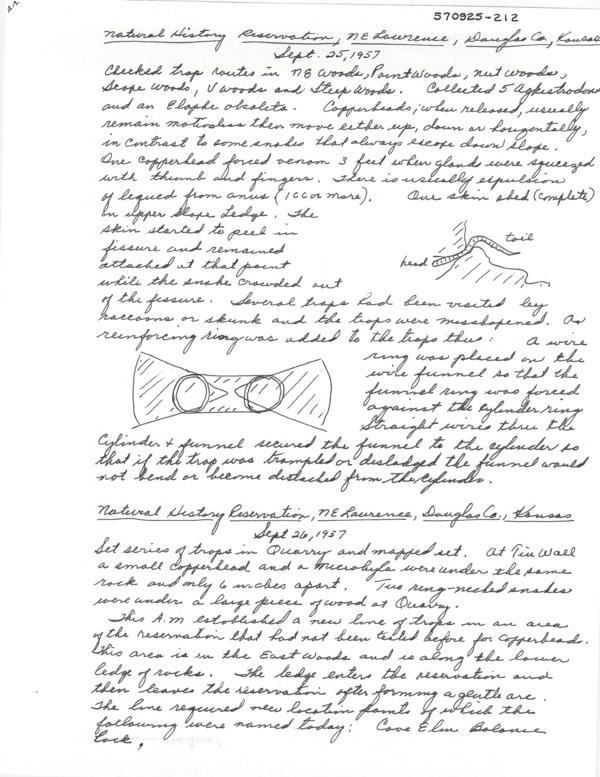 570925-212
Natural History Reservation, NE Lawrence, Douglas Co., Kansas
Sept. 25, 1957
Checked trap routes in NE Woods, Point Woods, nut woods,
Scope woods, U woods and Steep Woods. Collected 5 Agkistrodon
and an Elaphe obsoleta. Copperheads, when released, usually
remain motionless then move either up, down or horizontally,
in contrast to some snakes that always escape down slope.
One copperhead forced venom 3 feet when glands were squeezed
with thumb and fingers. There is usually expulsion
of liquid from anus (1cc or more). One skin shed (complete)
on upper slope Ledge. The
skin started to peel in
fissure and remained
attached at that point
while the snake crowded out
head
tail
of the fissure. Several traps had been visited by
raccoons or skunk and the traps were misshapened. A
reinforcing ring was added to the traps thus: A wire
ring was placed on the
wire funnel so that the
funnel ring was forced
against the cylinder ring
Straight wires thru the
Cylinder + funnel secured the funnel to the cylinder so
that if the trap was trampled or dislodged the funnel would
not bend or become distached from the cylinder.
Natural History Reservation, NE Lawrence, Douglas Co., Kansas
Sept 26, 1957
Set series of traps in Quarry and mapped set. At Tin Wall
a small copperhead and a Microhyla were under the same
rock and only 6 inches apart. Two ring-necked snakes
were under a large piece of wood at Quarry.
This A.M established a new line of traps in an area
of the reservation that had not been tested before for copperheads.
This area is in the East Woods and is along the lower
ledge of rocks. The ledge enters the reservation and
then leaves the reservation after forming a gentle arc.
The line required new location points of which the
following were named today: Cove Elm Balance
Rock,